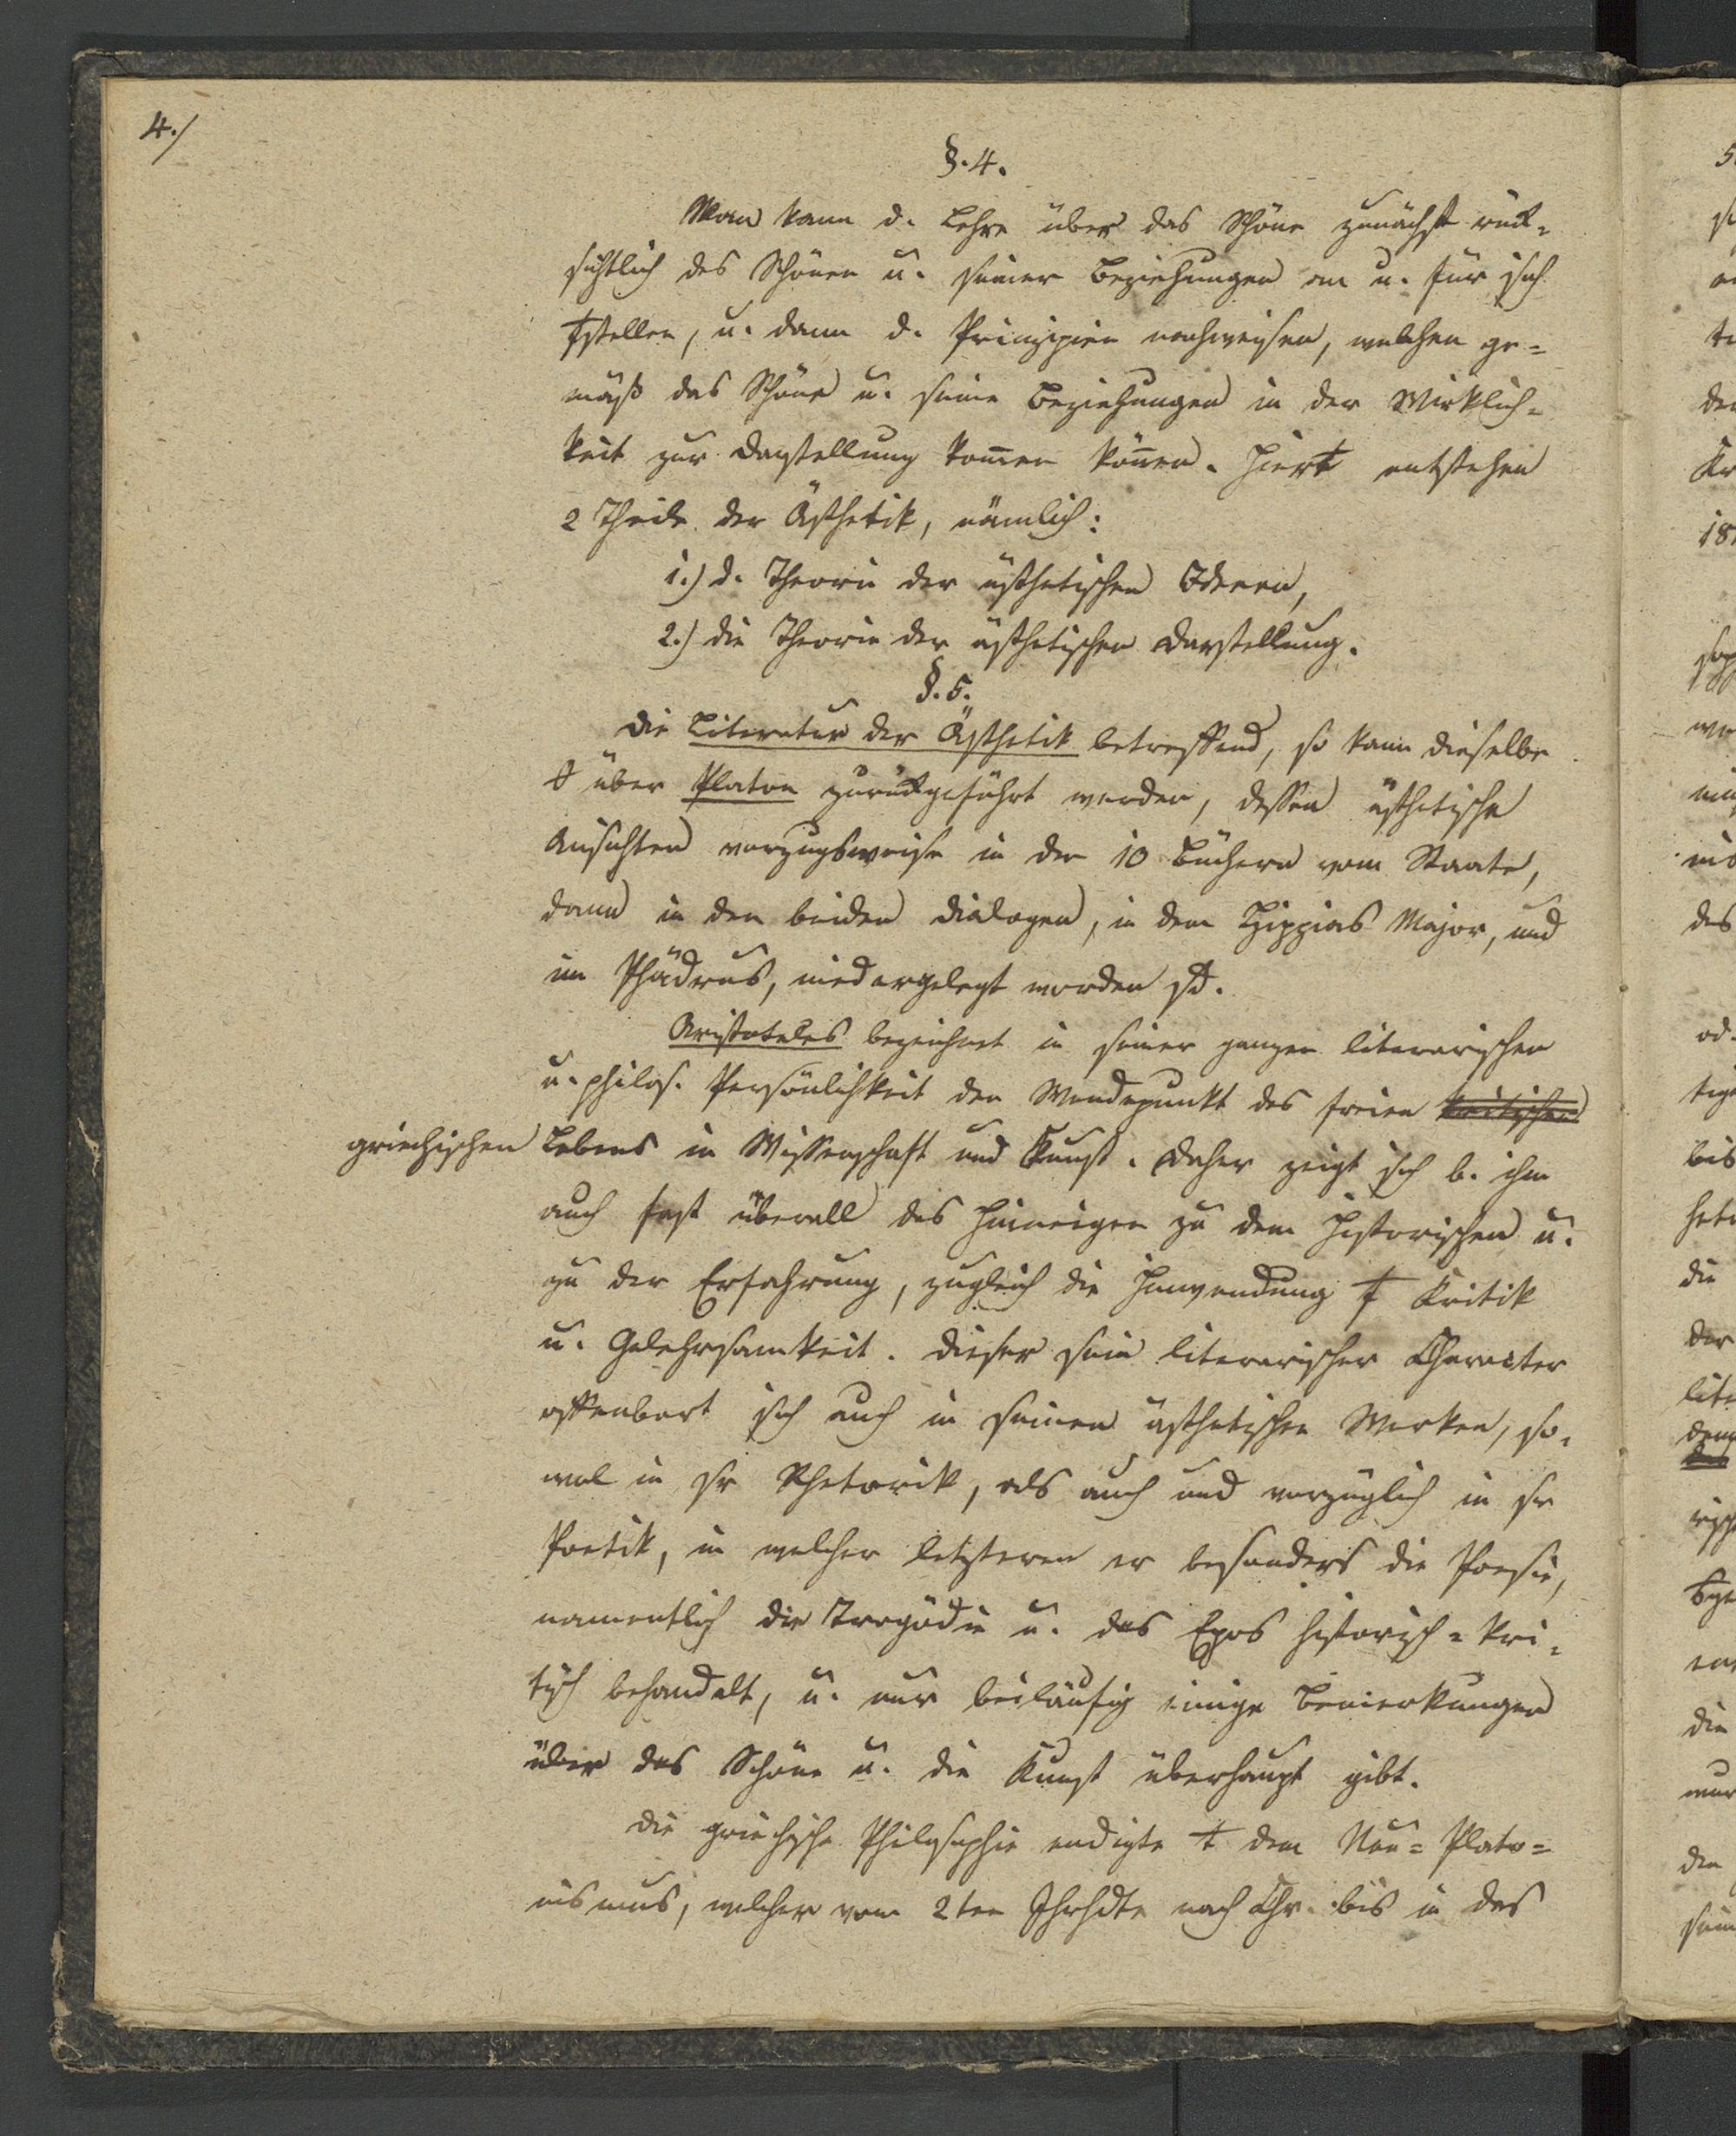 4./
§. 4.
Man kann d. Lehre über das Schöne zunächst rück-
sichtlich des Schönen u. seiner Beziehungen an u. für sich
stellen, u. dann d. Prinzipien nachweisen, welchen ge-
mäß das Schöne u. seine Beziehungen in der Wirklich-
keit zur Darstellung kom̅en kön̅en. Hier entstehen
2 Theile der Ästhetik, nämlich:
1.) d. Theorie der ästhetischen Ideeen,
2.) die Theorie der ästhetischen Darstellung.
§. 5.
Die Literatur der Ästhetik betreffend, so kann dieselbe
über Platon zurückgeführt werden, dessen ästhetische
Ansichten vorzugsweise in den 10 Büchern vom Staate,
dann in den beiden Dialogen, in dem Hippias Major, und
im Phädrus, niedergelegt worden sd.
Aristoteles bezeichnet in seiner ganzen literarischen
u. philos. Persönlichkeit den Wendepunkt des freien kritischen
griechischen Lebens in Wissenschaft und Kunst. Daher zeigt sich b. ihm
auch fast überall das Hinneigen zu dem Historischen u.
zu der Erfahrung, zugleich die Hinwendung Kritik
u. Gelehrsamkeit. Dieser sein literarischer Character
offenbart sich auch in seinen ästhetischen Werken, so-
wol in sr Rhetorik, als auch und vorzüglich in sr
Poetik, in welcher letzteren er besonders die Poesie,
namentlich die Tragödie u. das Epos historisch-kri-
tisch behandelt, u. nur beiläufig einige Bemerkungen
über das Schöne u. die Kunst überhaupt gibt.
Die griechische Philosophie endigte dem Neu-Plato-
nismus, welcher vom 2ten Jhrhdte nach Chr. bis in das